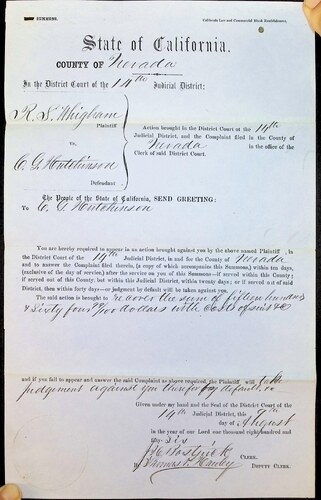 SUMMONS.
State of California.
COUNTY OF Nevada
In the District Court of the 14th Judicial District:
Plaintiff
vs.
C. G. Hutchinson
Defendant.
Action brought in the District Court of the 14th
Judicial District, and the Complaint filed in the County of
Nevada in the office of the
Clerk of said District Court.
The People of the State of California, SEND GREETING:
To C. G. Hutchinson
You are hereby required to appear in an action brought against you by the above named Plaintiff, in
the District Court of the 14th Judicial District, in and for the County of Nevada
and to answer the Complaint filed therein, (a copy of which accompanies this Summons,) within ten days,
(exclusive of the day of service) after the service on you of this Summons—if served within this County;
if served out of this County, but within this Judicial District, within twenty days; or if served out of said
District, then within forty days—or judgment by default will be taken against you.
The said action is brought to recover the sum of fifteen hundred
& Sixty four /100 dollars with costs of suit &c
and if you fail to appear and answer the said Complaint as above required, the Plaintiff will take
judgement against you therefor by default
Given under my hand and the Seal of the District Court of the
14th Judicial District, this 9th
day of August
in the year of our Lord one thousand eight hundred and
six
CLERK.
DEPUTY CLERK.